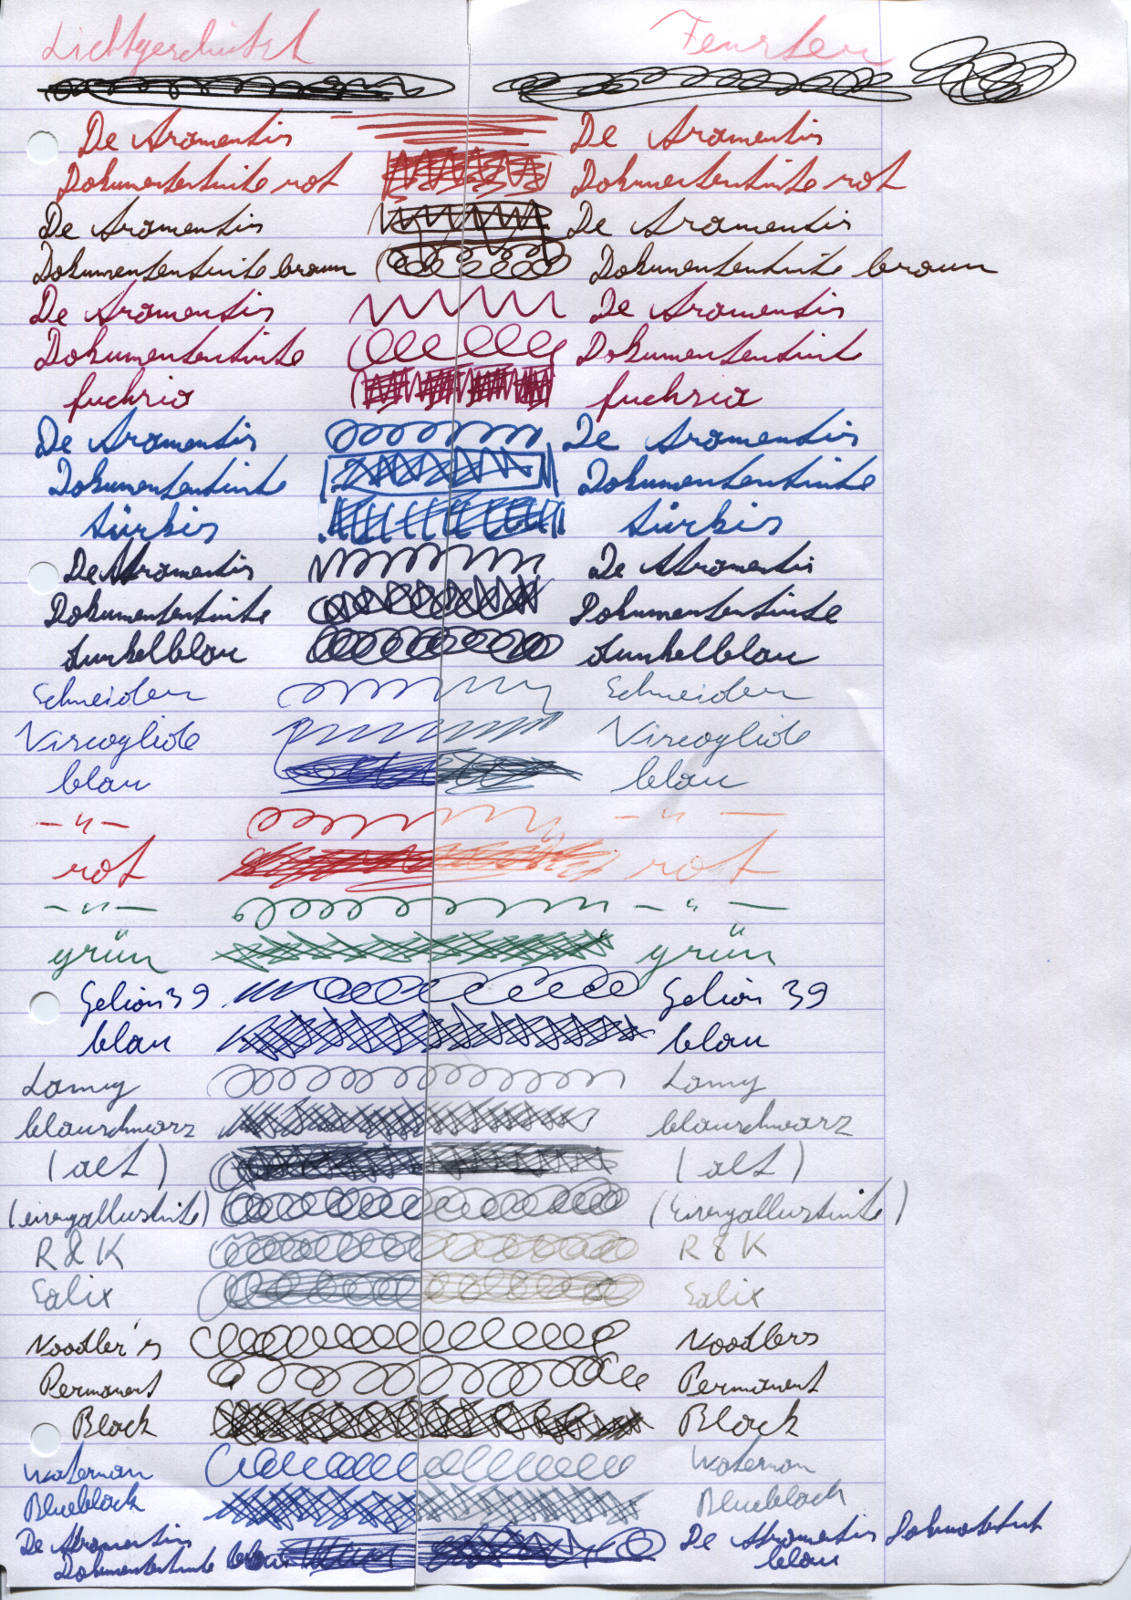 Lichtgeschützt Fenster
De Atramentis De Atramentis
Dokumententinte rot Dokumententinte rot
De Atramentis De Atramentis
Dokumententinte braun Dokumententinte braun
De Atramentis De Atramentis
Dokumententinte Dokumententinte
fuchsia fuchsia
De Atramentis De Atramentis
Dokumententinte Dokumententinte
türkis türkis
De Atramentis De Atramentis
Dokumententinte Dokumententinte
dunkelblau dunkelblau
Schneider Schneider
Viscoglide Viscoglide
blau blau
-"- -"-
rot rot
-"- -"-
grün grün
Gelion 39 Gelion 39
blau blau
Lamy Lamy
blauschwarz blauschwarz
(alt) (alt)
(eisengallustinte) (Eisengallustinte)
R & K R & K
Salix Salix
Noodler's Noodlers
Permanent Permanent
Black Black
Waterman Waterman
Blueblack Blueblack
De Atramentis De Atramentis
Dokumententinte blau blau